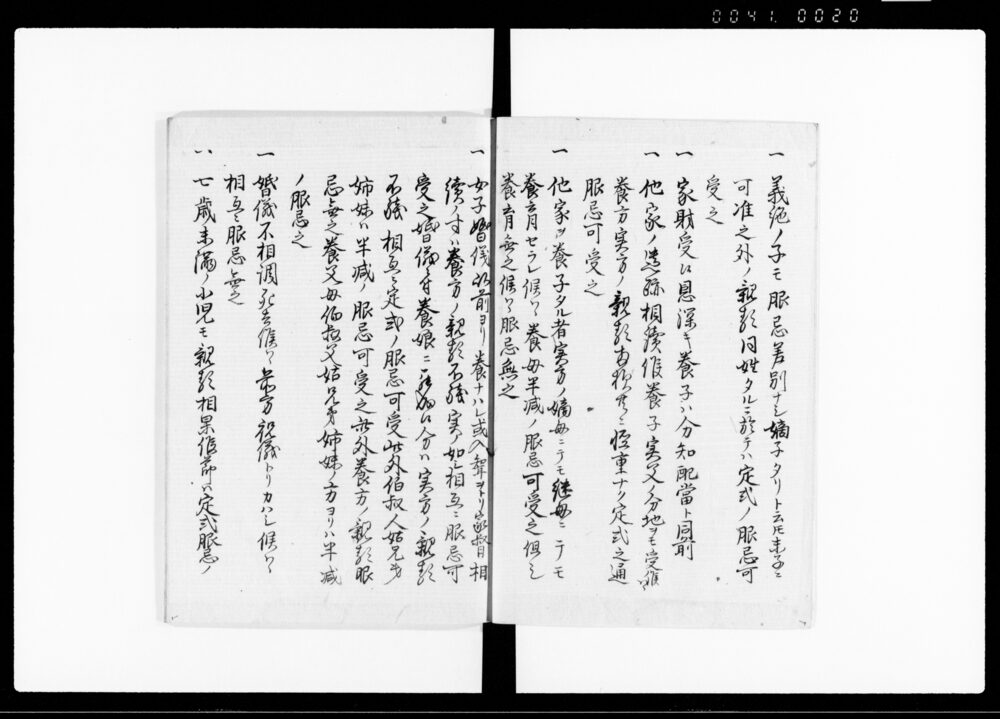 0041. 0020
一 義絶ノ子モ服忌差別ナシ嫡子タリト云トモ末子ニ
可准之外ノ親類同姓タルニ於テハ定式ノ服忌可
受之
一 家財受ケ恩深キ養子ハ分知配當ト同前
一 他家ノ遺跡相續作養子実父ノ分地ヲモ受候
養方実方ノ親類軽重ナク定式之通
服忌可受之
一 他家ヘ養子タル者実方ノ嫡母ニテモ継母ニテモ
養育セラレ候ハヽ養母半減ノ服忌可受之但シ
養育無之候ハヽ服忌無之
一 女子婚儀以前ヨリ養ナハレ或入聟ヲトリ家督相
續ノ方ハ養方ノ親類不残実ノ如ニ相互ニ服忌可
受之婚儀ニ付養娘ニ ハ実方ノ親類
不残相互ニ定式ノ服忌可受此外伯叔父姑兄弟
姉妹ハ半減ノ服忌可受之此外養方ノ親類服
忌無之養父母伯叔父姑兄弟姉妹ノ方ヨリハ半減
ノ服忌之
一 婚儀不相調死去候ハヽ 祝儀トリカハシ候ハヽ
相互ニ服忌無之
一 七歳未満ノ小児モ親類相果作節ハ定式服忌ノ